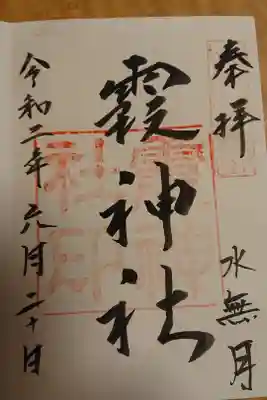 奉拝
水無月
霞神社
令和二年六月二十日